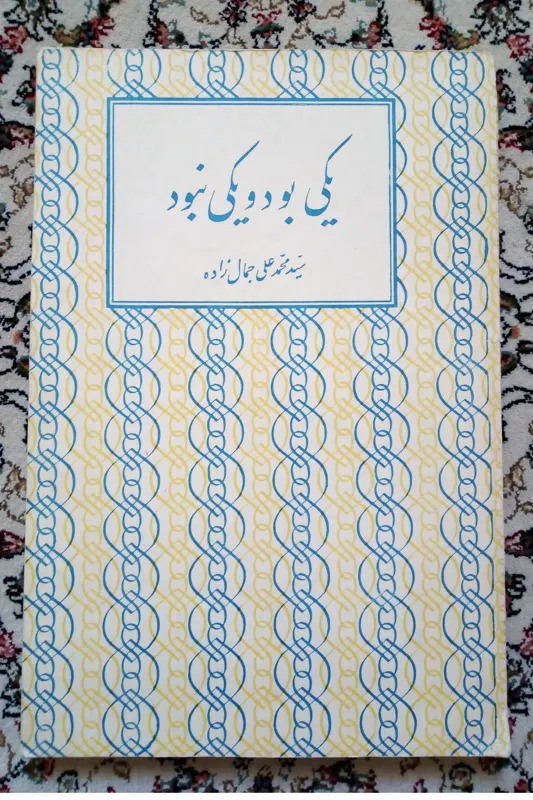 یکی بود و یکی نبود
سیّد محمّد علی جمال زاده